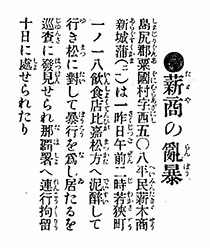 ●薪商の亂暴
島尻郡粟國村字西五〇八平民新木商
新城蒲(二〇)は一昨日午前二時若狹町
一ノ一八飮食店比嘉松方へ泥醉して
行き松に對して暴行を爲し居たるを
巡査に發見せられ那覇署へ連行拘留
十日に處せられたり